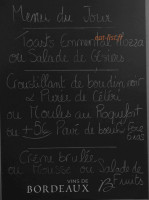 Menu du Jour
Toasts Emmental Mozza
ou Salade de Gésiers
Croustillant de boudin noir
Purée de Céleri
ou Moules au Roquefort
ou +5€ Pavé de boeuf
Crème brullée
ou Mousse ou Salade de
Fruits
VINS DE
BORDEAUX